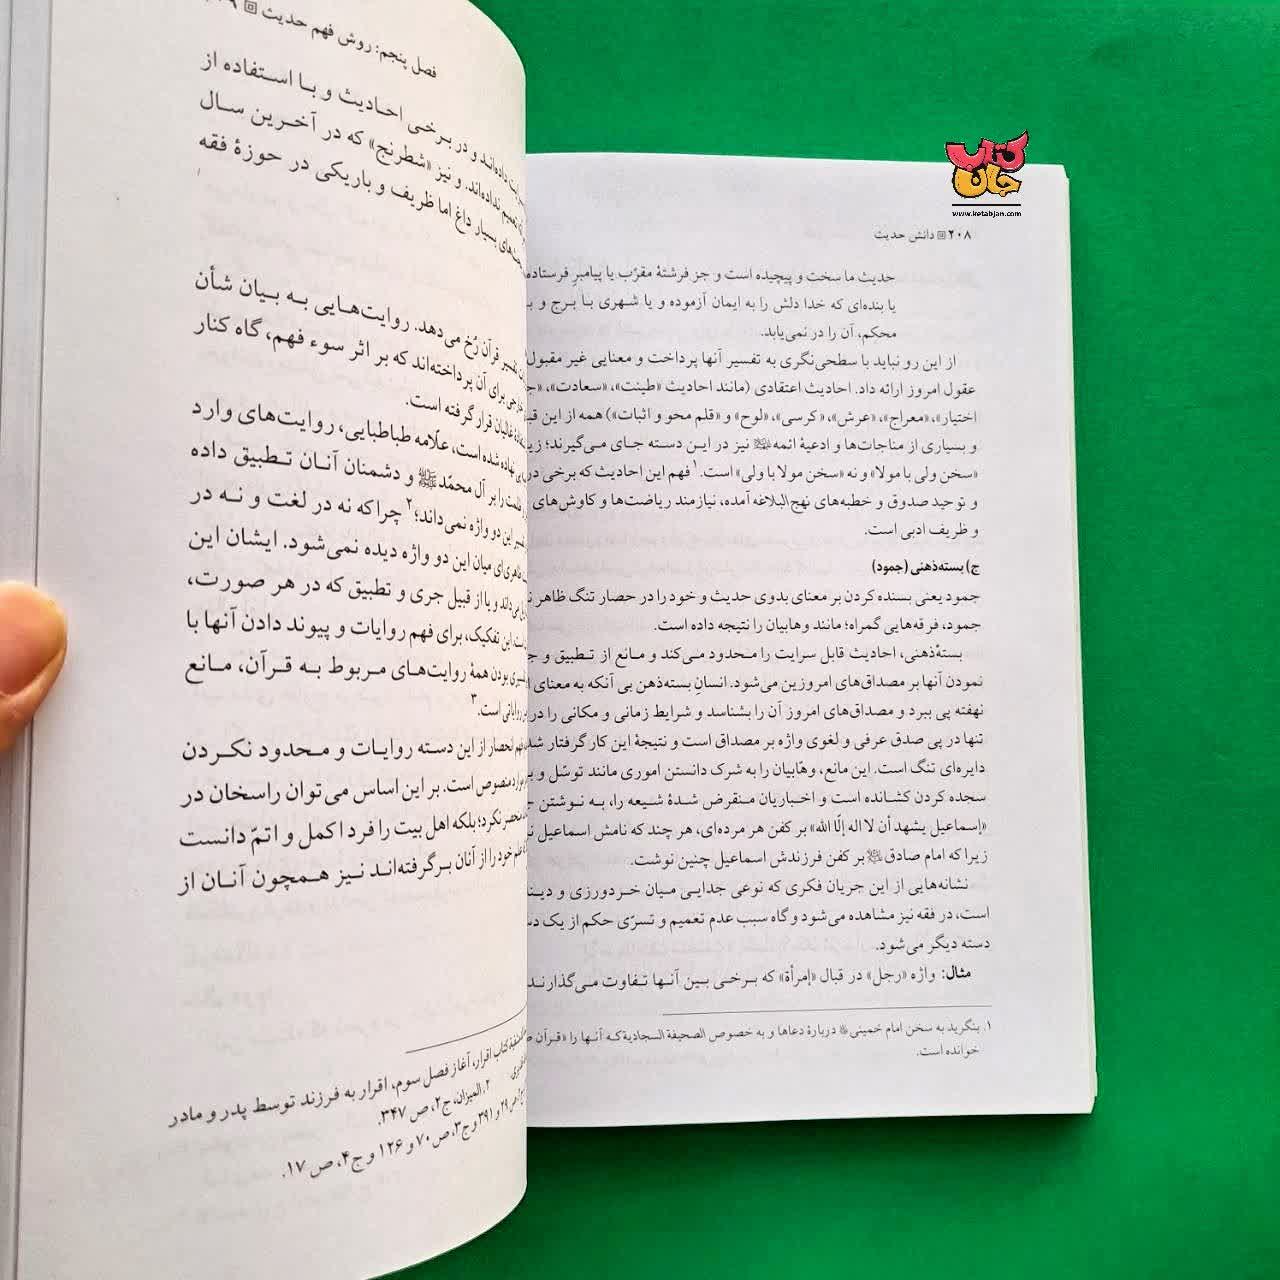 کتاب جان
www.ketabjan.com
۲۰۸ دانش حدیث
حدیث ما سخت و پیچیده است و جز فرشتهٔ مقرّب یا پیامبرِ فرستاده
یا بنده‌ای که خدا دلش را به ایمان آزموده و یا شهری با برج و
محکم، آن را در نمی‌یابد.
از این رو نباید با سطحی‌نگری به تفسیر آنها پرداخت و معنایی غیر مقبول
عقول امروز ارائه داد. احادیث اعتقادی (مانند احادیث «طینت»، «سعادت»،
اختیار»، «معراج»، «عرش»، «کرسی»، «لوح» و «قلم محو و اثبات») همه از این
و بسیاری از مناجات‌ها و ادعیهٔ ائمه نیز در این دسته جای می‌گیرند؛
«سخن ولی با مولا» و نه «سخن مولا با ولی» است.۱ فهم این احادیث که برخی در
و توحید صدوق و خطبه‌های نهج‌البلاغه آمده، نیازمند ریاضت‌ها و کاوش‌های
و ظریف ادبی است.
ج) بسته‌ذهنی (جمود)
جمود یعنی بسنده کردن بر معنای بدوی حدیث و خود را در حصار تنگ ظاهر
جمود، فرقه‌هایی گمراه؛ مانند وهابیان را نتیجه داده است.
بسته‌ذهنی، احادیث قابل سرایت را محدود می‌کند و مانع از تطبیق و
نمودن آنها بر مصداق‌های امروزین می‌شود. انسانِ بسته‌ذهن بی آنکه به معنای
نهفته پی ببرد و مصداق‌های امروز آن را بشناسد و شرایط زمانی و مکانی را
تنها در پی صدق عرفی و لغوی واژه بر مصداق است و نتیجهٔ این کار گرفتار
دایره‌ای تنگ است. این مانع، وهّابیان را به شرک دانستن اموری مانند توسّل و
سجده کردن کشانده است و اخباریان منقرض شدهٔ شیعه را، به نوشتن
«إسماعیل یشهد أن لا اله إلّا الله» بر کفن هر مرده‌ای، هر چند که نامش اسماعیل
زیرا که امام صادق بر کفن فرزندش اسماعیل چنین نوشت.
نشانه‌هایی از این جریان فکری که نوعی جدایی میان خردورزی و
است، در فقه نیز مشاهده می‌شود و گاه سبب عدم تعمیم و تسرّی حکم از یک
دسته دیگر می‌شود.
مثال: واژه «رجل» در قبال «إمرأة» که برخی بین آنها تفاوت می‌گذارند
۱. بنگرید به سخن امام خمینی دربارهٔ دعاها و به خصوص الصحیفة السجادیة که آنها را «قرآن
خوانده است.
فصل پنجم: روش فهم حدیث
داده‌اند و در برخی احادیث و با استفاده از
نداده‌اند. و نیز «شطرنج» که در آخرین سال
بسیار داغ اما ظریف و باریکی در حوزهٔ فقه
قرآن رُخ می‌دهد. روایت‌هایی به بیان شأن
خارجی برای آن پرداخته‌اند که بر اثر سوء فهم، گاه کنار
غالیان قرار گرفته است.
نهاده شده است، علّامه طباطبایی، روایت‌های وارد
را بر آل محمّد و دشمنان آنان تطبیق داده
این دو واژه نمی‌داند؛۲ چراکه نه در لغت و نه در
میان این دو واژه دیده نمی‌شود. ایشان این
می‌داند و یا از قبیل جری و تطبیق که در هر صورت،
این تفکیک، برای فهم روایات و پیوند دادن آنها با
بودن همهٔ روایت‌های مربوط به قرآن، مانع
است.۳
انحصار از این دسته روایات و محدود نکردن
منصوص است. بر این اساس می‌توان راسخان در
منحصر نکرد؛ بلکه اهل بیت را فرد اکمل و اتمّ دانست
علم خود را از آنان برگرفته‌اند نیز همچون آنان از
کتاب اقرار، آغاز فصل سوم، اقرار به فرزند توسط پدر و مادر
۲. المیزان، ج۲، ص ۳۴۷.
ص ۲۹ و ۳۹۱ و ج۳، ص ۷۰ و ۱۲۶ و ج۴، ص ۱۷.